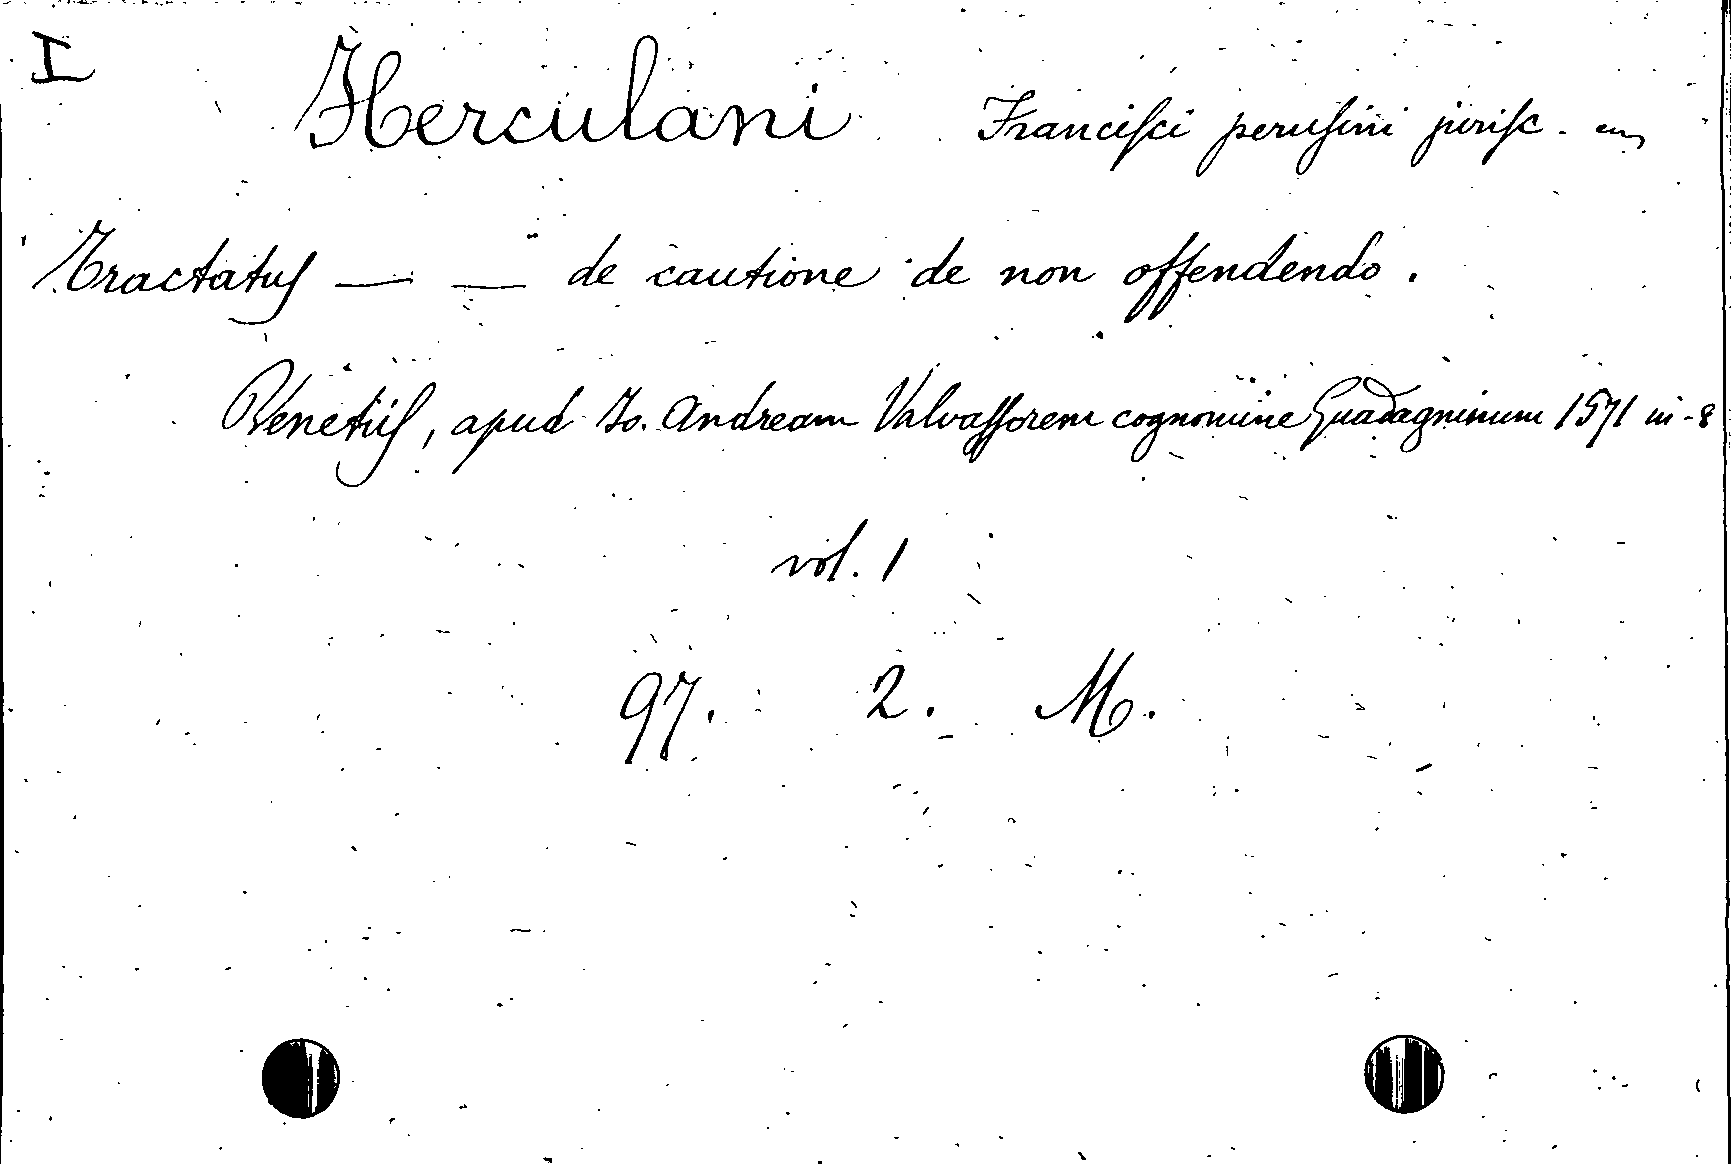 I
Herculani Francisci perusini jurisc.
Tractatus — — de cautione de non offendendo.
Venetiis, apud Jo. Andream Valvassorem cognomine Guadagninum 1571 in-8
vol. 1
97. 2. M.